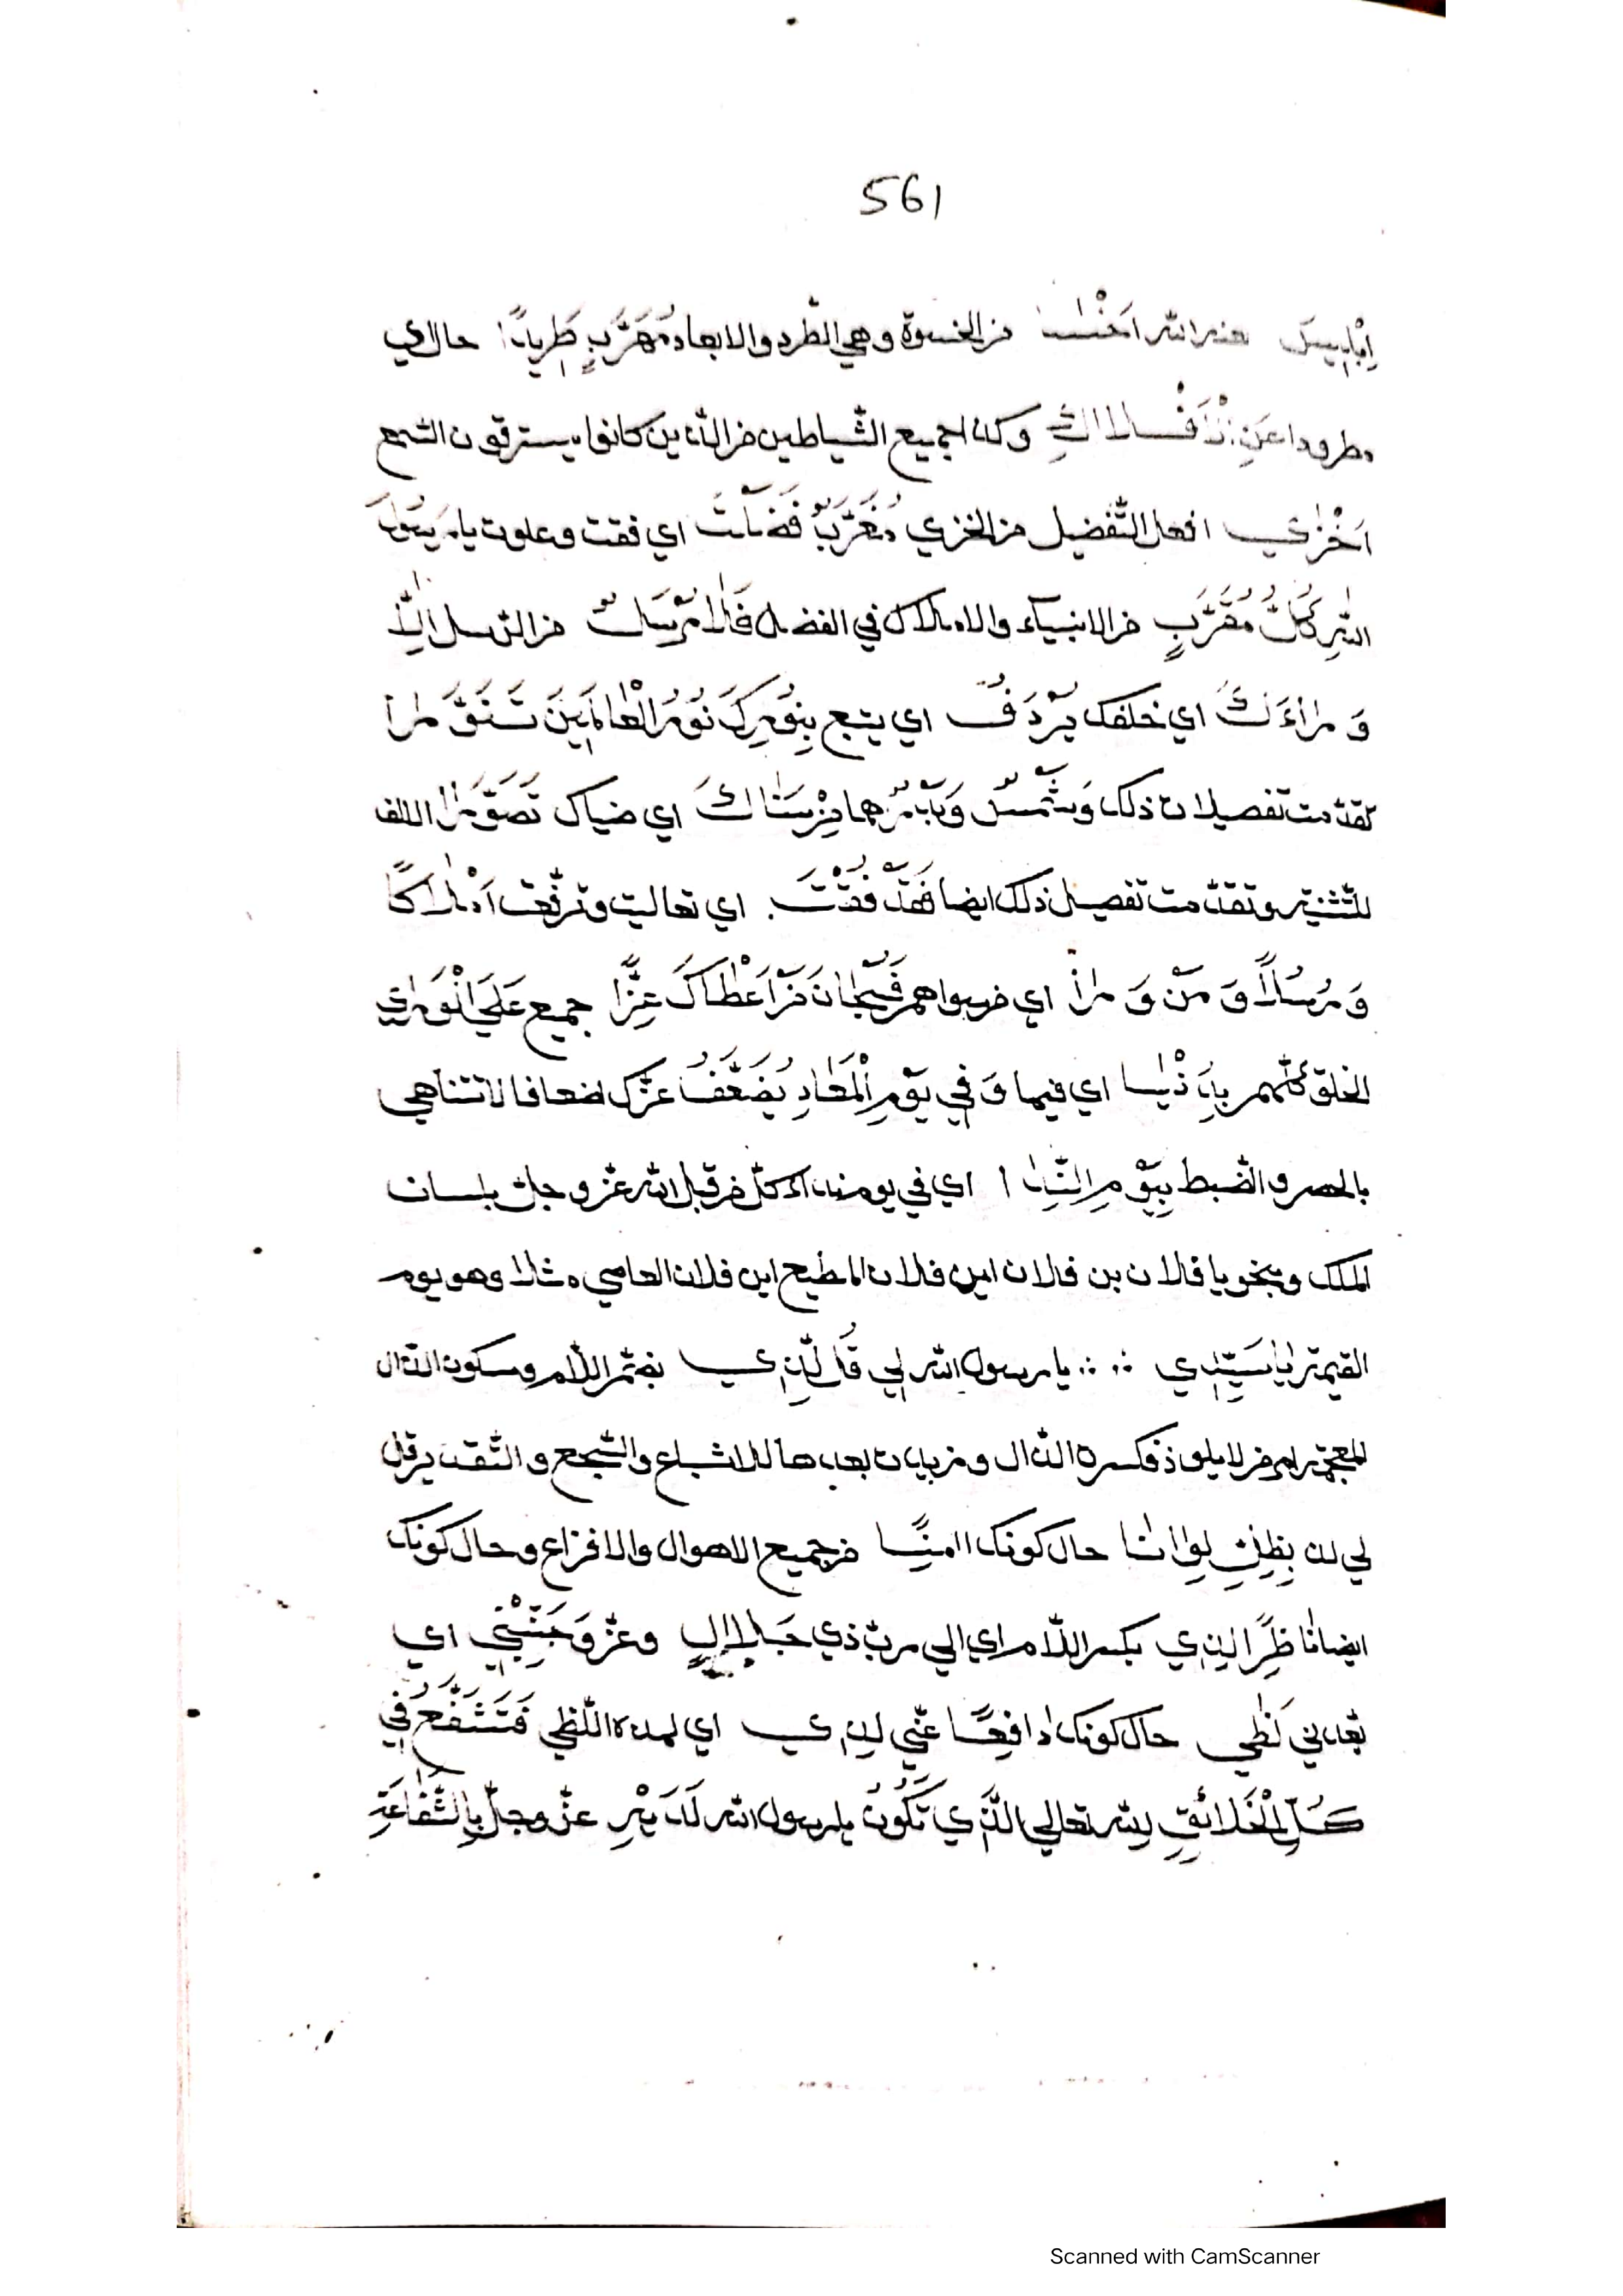 561
اِبْلِيسَ لعنه الله اَخْسَا من الخسوة وهي الطّرد والابعاد مُهَرَّبٍ طَرِيدًا حال اي
مطرودا عَنِ وكذا جميع الشّياطين من الّذين كانوا يسترقون السّمع
اَخْزٰي افعل التّفضيل من الخزي مُغَرَّبٌ فَضَلْتَ اي فقت وعلوت يا رَسُولَ
اللهِ كُلَّ مُقَرَّبٍ من الانبياء والاملاك في الفضل فَلَا مُرْسَلٌ من الرّسل اِلَّا
وَرَاءَكَ اي خلفك يُرْدَفُ اي يتبع بِنُورِكَ نُورُ الْعَالَمِينَ تَنَوَّرَا
تقدّمت تفصيلات ذلك وَشَمْسٌ وَبَدْرٌ هما مِنْ سَنَاكَ اي ضياك تَصَوَّرَا الالف
للتّثنية وتقدّمت تفصيل ذلك ايضا فَقَدْ فُقْتَ اي تعاليت وترفّعت اَمْلَاكًا
وَرُسْلًا وَمَنْ وَرَا اي من سواهم فَسُبْحَانَ مَنْ اَعْطَاكَ عِزًّا جميع عَلَي الْوَرٰي
الخلق كلّهم بِدُنْيَا اي فيها وَفِي يَوْمِ الْمَعَادِ يُضَعَّفُ عزّك اضعافا لا تتناهي
بالحصر والضّبط بِيَوْمِ النِّدَا اي في يوم نداء كلّ من قبل الله عزّ وجلّ بلسان
الملك ونحو يا فلان بن فلان اين فلان المطيع اين فلان العاصي مثلا وهو يوم
القيمة يَا سَيِّدِي يا رسول الله لِي قُلْ لُذِي بضمّ اللّام وسكون الذّال
المعجمة امر من لاذ يلوذ فكسرة الذّال ومزيدات بعدها للاشباع والسّجع والتّقدير قل
لي لذ بِظِلِّ لِوَائِنَا حال كونك اٰمِنًا من جميع الاهوال والافزاع وحال كونك
ايضا نَاظِرًا لِذِي بكسر اللّام اي الي ربّ ذي جَلَالٍ وعزّ وَجَنِّبْنِي اي
بعّدني لَظٰي حال كونك دَافِعًا عَنِّي لِذِي اي لهذه اللّظي فَتَشْفَعُ فِي
كُلِّ الْخَلَائِقِ لله تعالي الَّذِي تَكُونُ يا رسول الله لَدَيْهِ عزّ وجلّ بِالشَّفَاعَةِ
Scanned with CamScanner